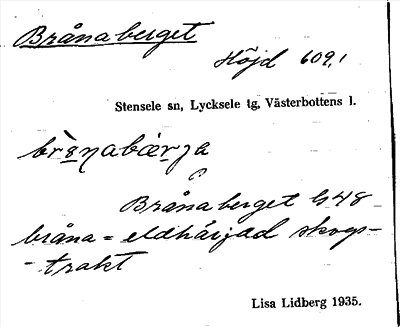 Brånaberget
Höjd 609,1
Stensele sn, Lycksele tg, Västerbottens l.
Brånaberget G48
bråna = eldhärjad skogs-
-trakt
Lisa Lidberg 1935.